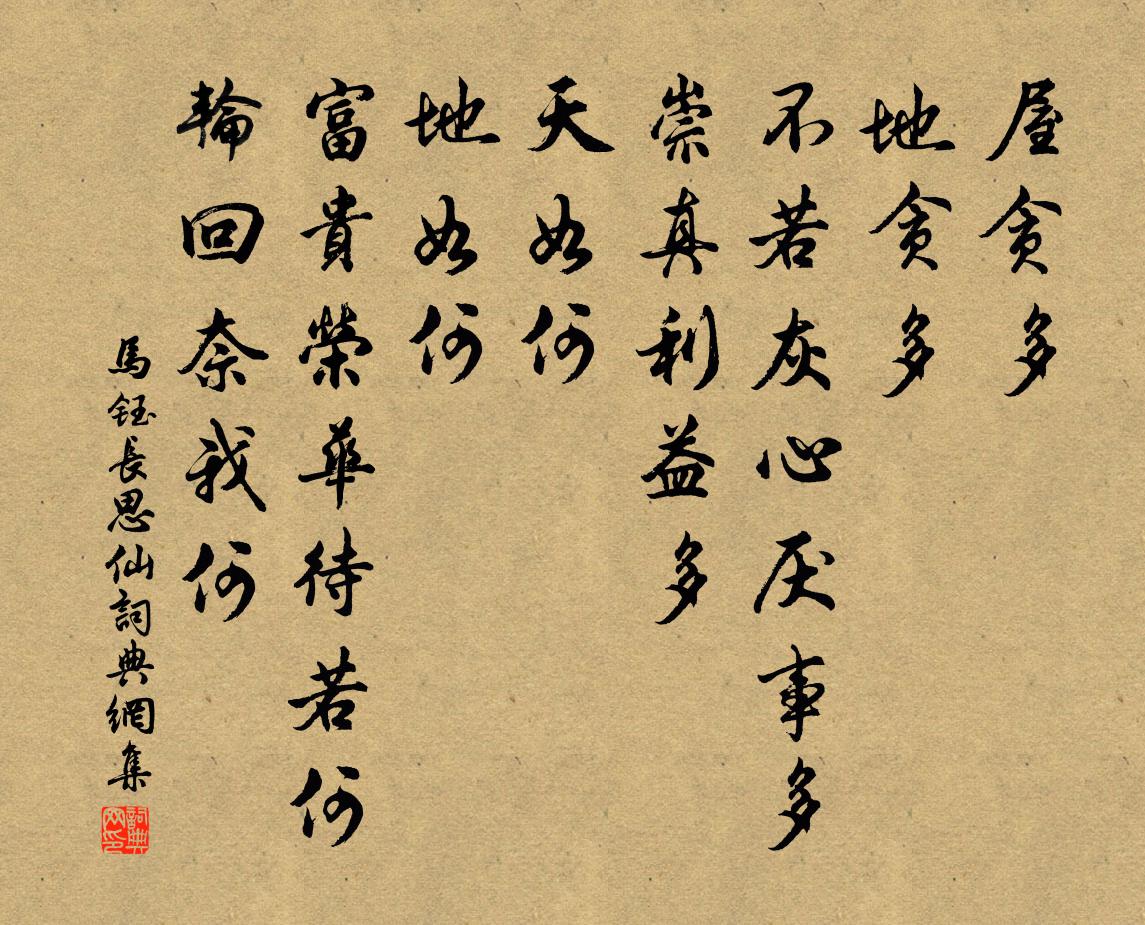 屋贪多
地贪多
不若灰心厌事多
崇真利益多
天如何
地如何
富貴榮華待若何
輪回奈我何
馬鈺長思仙詞典網集
詞典网印